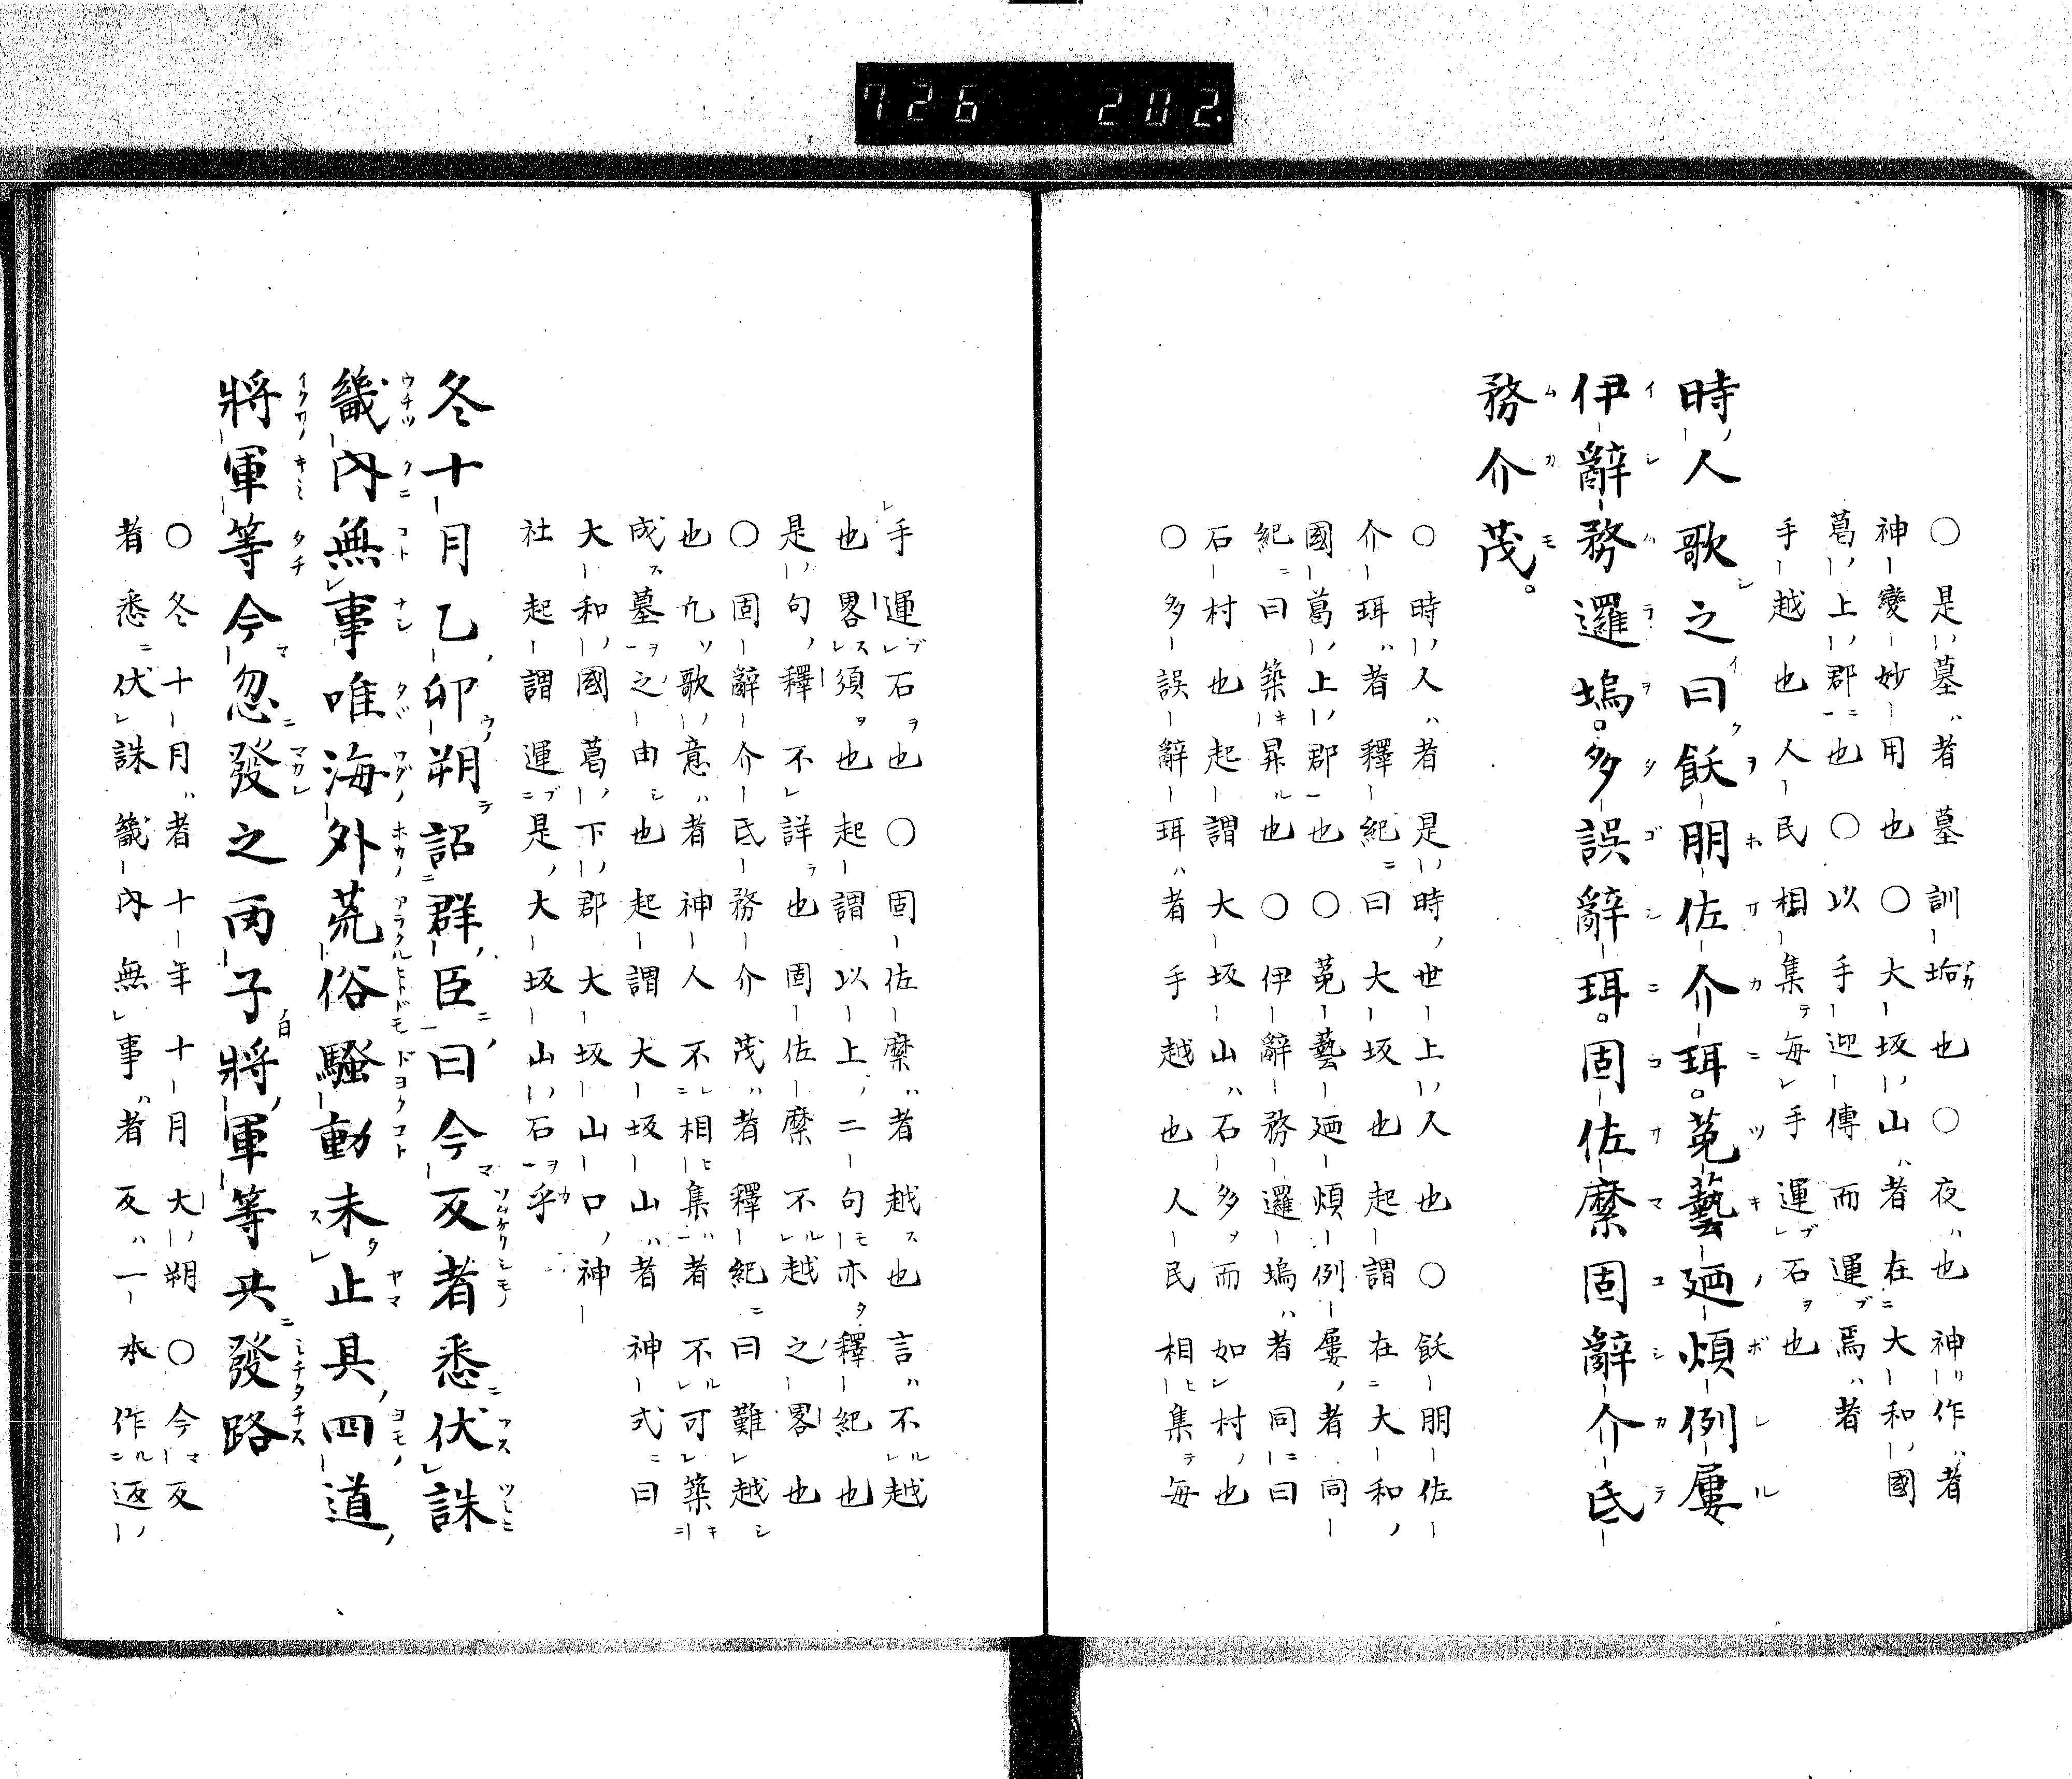 726 202.
○是墓者墓訓垢也○夜也神作者
神變妙用也○大坂山者在大和國
葛上郡也○以手迎傳而運焉者
手越也人民相集每手運石也
時人歌之曰飫朋佐介珥菟藝廼煩例屢
伊辭務邏塢多誤辭珥固佐縻固辭介氐
務介茂
○時人者是時世上人也○飫朋佐
介珥者釋紀曰大坂也起謂在大和
國葛上郡也○菟藝廼煩例屢者同
紀曰築昇也○伊辭務邏塢者同曰
石村也起謂大坂山石多而如村也
○多誤辭珥者手越也人民相集每
手運石也○固佐縻者越也言不越
也畧須也起謂以上二句亦釋紀也
是句釋不詳也固佐縻不越之畧也
○固辭介氐務介茂者釋紀曰難越
也九歌意者神人不相集者不可築
成墓之由也起謂大坂山者神式曰
大和國葛下郡大坂山口神
社起謂運是大坂山石乎
冬十月乙卯朔詔群臣曰今反者悉伏誅
畿內無事唯海外荒俗騷動未止其四道
將軍等今忽發之丙子將軍等共發路
○冬十月者十年十月大朔○今反
者悉伏誅畿內無事者反一本作返